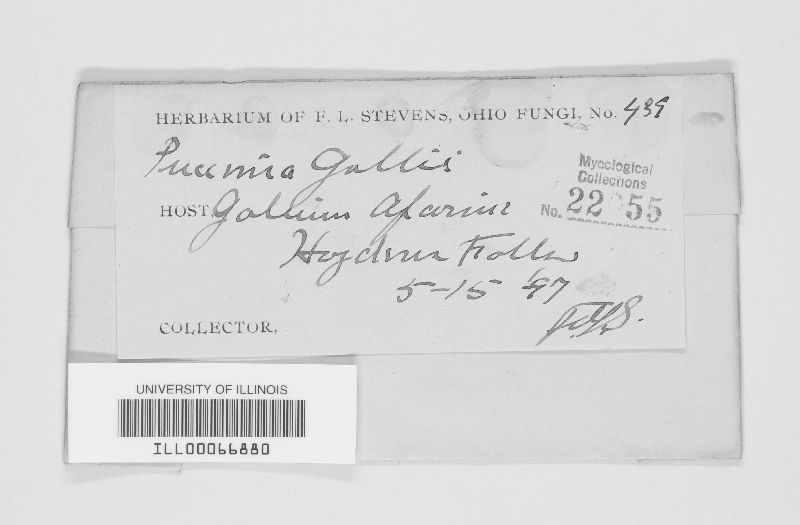 HERBARIUM OF F. L. STEVENS, OHIO FUNGI, No. 439
Puccinia Gallii
Mycological
Collections
No. 22 55
HOST Galium Aparine
5-15 '97
F.L.S.
COLLECTOR,
UNIVERSITY OF ILLINOIS
ILL00066880